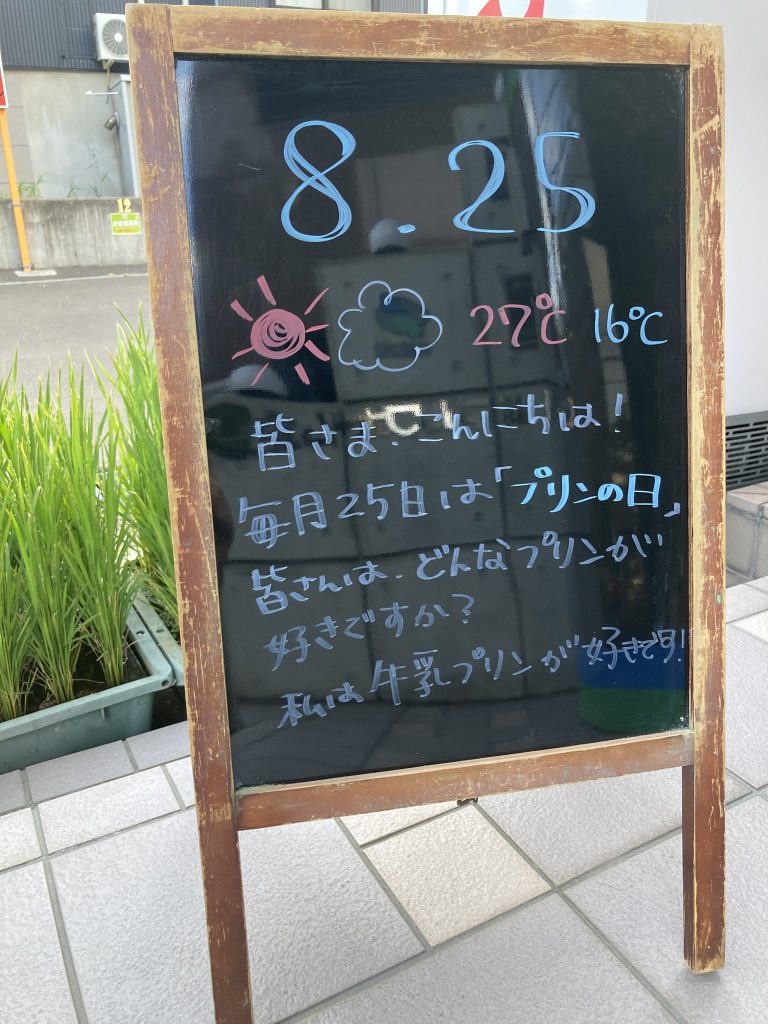 8.25
27℃ 16℃
皆さま.こんにちは!
毎月25日は「プリンの日」
皆さんは、どんなプリンが
好きですか?
私は牛乳プリンが好きです!
12